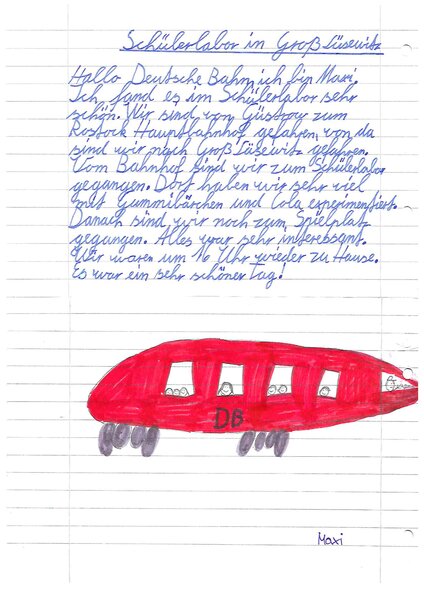 Schülerlabor in Groß Lüsewitz
Hallo Deutsche Bahn, ich bin Maxi.
Ich fand es im Schülerlabor sehr
schön. Wir sind von Güstrow zum
Rostock Hauptbahnhof gefahren, von da
sind wir nach Groß Lüsewitz gefahren.
Vom Bahnhof sind wir zum Schülerlabor
gegangen. Dort haben wir sehr viel
mit Gummibärchen und Cola experimentiert.
Danach sind wir noch zum Spielplatz
gegangen. Alles war sehr interessant.
Wir waren um 16 Uhr wieder zu Hause.
Es war ein sehr schöner Tag!
DB
Maxi